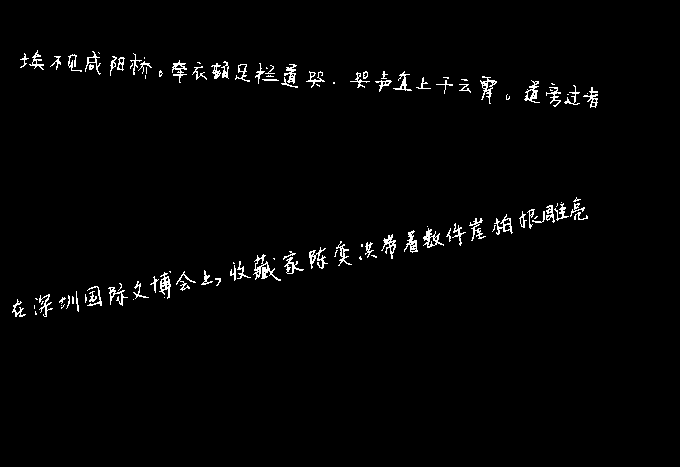 埃不见咸阳桥。牵衣顿足拦道哭.哭声直上干云霄。道旁过者
在深圳国际文博会上,收藏家陈奕洪带着数件崖柏根雕亮